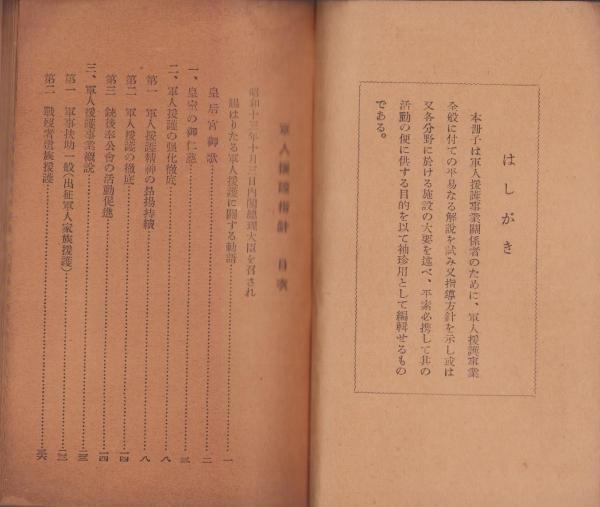 はしがき
本冊子は軍人援護事業関係者のために、軍人援護事業
全般に付ての平易なる解説を試み又指導方針を示し或は
又各分野に於ける施設の大要を述べ、平素必携して其の
活動の便に供する目的を以て袖珍用として編輯せるもの
である。
軍人援護指針 目次
昭和十三年十月三日内閣總理大臣を召され
賜はりたる軍人援護に關する勅語…………一
皇后宮御歌…………二
一、皇室の御仁慈…………三
二、軍人援護の强化徹底…………八
第一 軍人援護精神の昂揚持續…………八
第二 軍人援護の徹底…………一四
第三 銃後奉公會の活動促進…………一四
三、軍人援護事業概說…………二三
第一 軍事扶助一般(出征軍人家族援護)…………二三
第二 戰歿者遺族援護…………三六